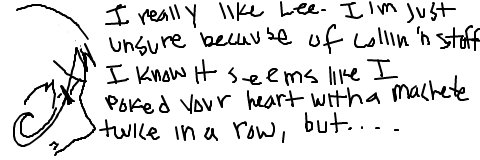 I really like Lee. I'm just
unsure because of Collin 'n stuff
I know it seems like I
poked your heart with a machete
twice in a row, but....